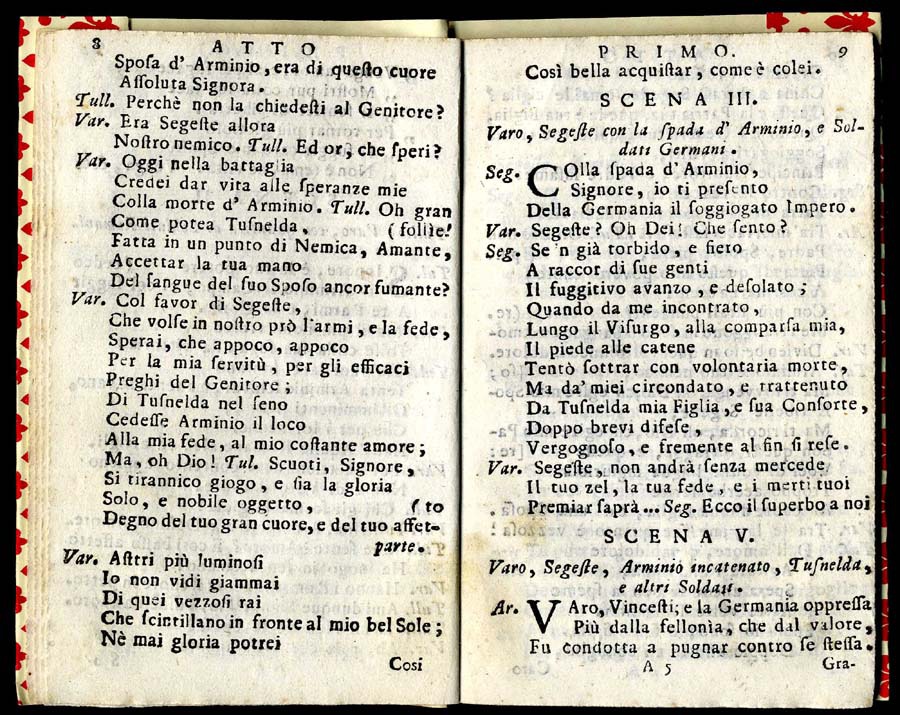 8 ATTO
Sposa d' Arminio, era di questo cuore
Assoluta Signora.
Tull. Perchè non la chiedesti al Genitore?
Var. Era Segeste allora
Nostro nemico. Tull. Ed or, che speri?
Var. Oggi nella battaglia
Credei dar vita alle speranze mie
Colla morte d' Arminio. Tull. Oh gran
Come potea Tusnelda, (follìe!
Fatta in un punto di Nemica, Amante,
Accettar la tua mano
Del sangue del suo Sposo ancor fumante?
Var. Col favor di Segeste,
Che volse in nostro prò l'armi, e la fede,
Sperai, che appoco, appoco
Per la mia servitù, per gli efficaci
Preghi del Genitore;
Di Tusnelda nel seno
Cedesse Arminio il loco
Alla mia fede, al mio costante amore;
Ma, oh Dio! Tul. Scuoti, Signore,
Si tirannico giogo, e sia la gloria
Solo, e nobile oggetto, (to
Degno del tuo gran cuore, e del tuo affet-
parte.
Var. Asttri più luminosi
Io non vidi giammai
Di quei vezzosi rai
Che scintillano in fronte al mio bel Sole;
Nè mai gloria potrei
Cosi
PRIMO. 9
Così bella acquistar, come è colei.
SCENA III.
Varo, Segeste con la spada d' Arminio, e Sol-
dati Germani.
Seg. COlla spada d' Arminio,
Signore, io ti presento
Della Germania il soggiogato Impero.
Var. Segeste? Oh Dei! Che sento?
Seg. Se 'n già torbido, e fiero
A raccor di sue genti
Il fuggitivo avanzo, e desolato;
Quando da me incontrato,
Lungo il Visurgo, alla comparsa mia,
Il piede alle catene
Tentò sottrar con volontaria morte,
Ma da' miei circondato, e trattenuto
Da Tusnelda mia Figlia, e sua Consorte,
Doppo brevi difese,
Vergognoso, e fremente al fin si rese.
Var. Segeste, non andrà senza mercede
Il tuo zel, la tua fede, e i merti tuoi
Premiar saprà ... Seg. Ecco il superbo a noi
SCENA V.
Varo, Segeste, Arminio incatenato, Tusnelda,
e altri Soldati.
Ar. VAro, Vincesti; e la Germania oppressa
Più dalla fellonìa, che dal valore,
Fu condotta a pugnar contro se stessa.
A 5 Gra-